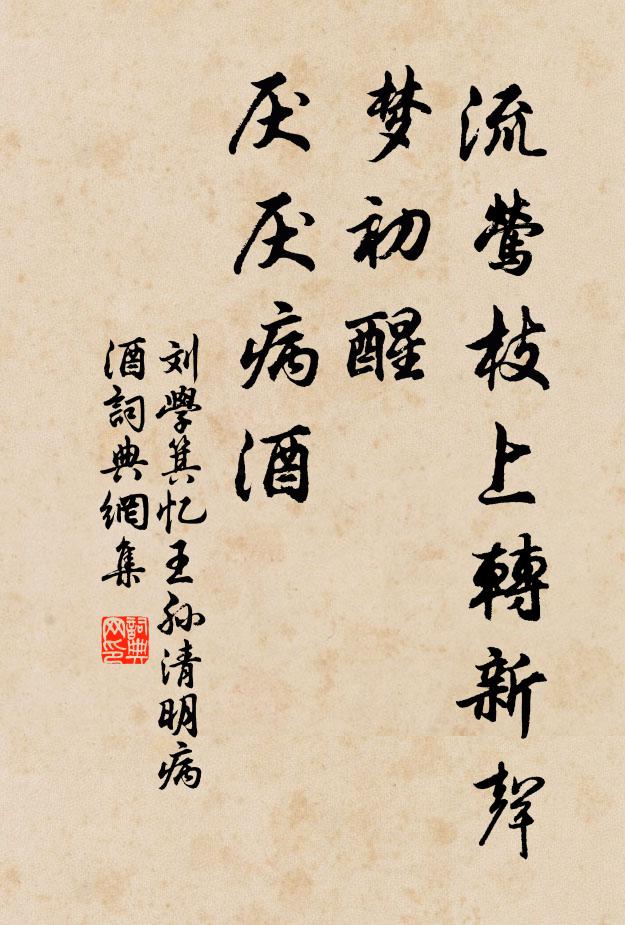 流莺枝上轉新聲
梦初醒
厌厌病酒
刘學箕忆王孙清明病
酒詞典網集
詞典
网印